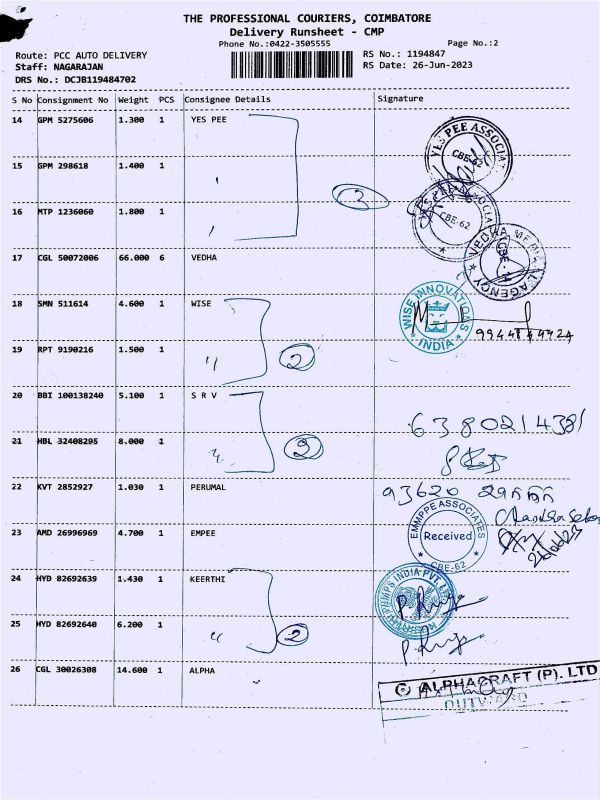 THE PROFESSIONAL COURIERS, COIMBATORE
Delivery Runsheet - CMP
Phone No.:0422-3505555 Page No.:2
Route: PCC AUTO DELIVERY RS No.: 1194847
Staff: NAGARAJAN RS Date: 26-Jun-2023
DRS No.: DCJB119484702
S No Consignment No Weight PCS Consignee Details Signature
14 GPM 5275606 1.300 1 YES PEE
YES PEE ASSOCIAT
CBE-62
15 GPM 298618 1.400 1
3
16 MTP 1236060 1.800 1
CBE-62
17 CGL 50072006 66.000 6 VEDHA
18 SMN 511614 4.600 1 WISE
WISE INNOVATIONS
INDIA
19 RPT 9190216 1.500 1 " 2
20 BBI 100138240 5.100 1 S R V
6380214381
21 HBL 32408295 8.000 1 " 2
22 KVT 2852927 1.030 1 PERUMAL
93620
23 AMD 26996969 4.700 1 EMPEE
EMMPPE ASSOCIATES
Received
CBE-62
24 HYD 82692639 1.430 1 KEERTHI
PUMPS INDIA PVT. L
25 HYD 82692640 6.200 1 " 2
26 CGL 30026308 14.600 1 ALPHA
ALPHACRAFT (P). LTD
OUTWARD